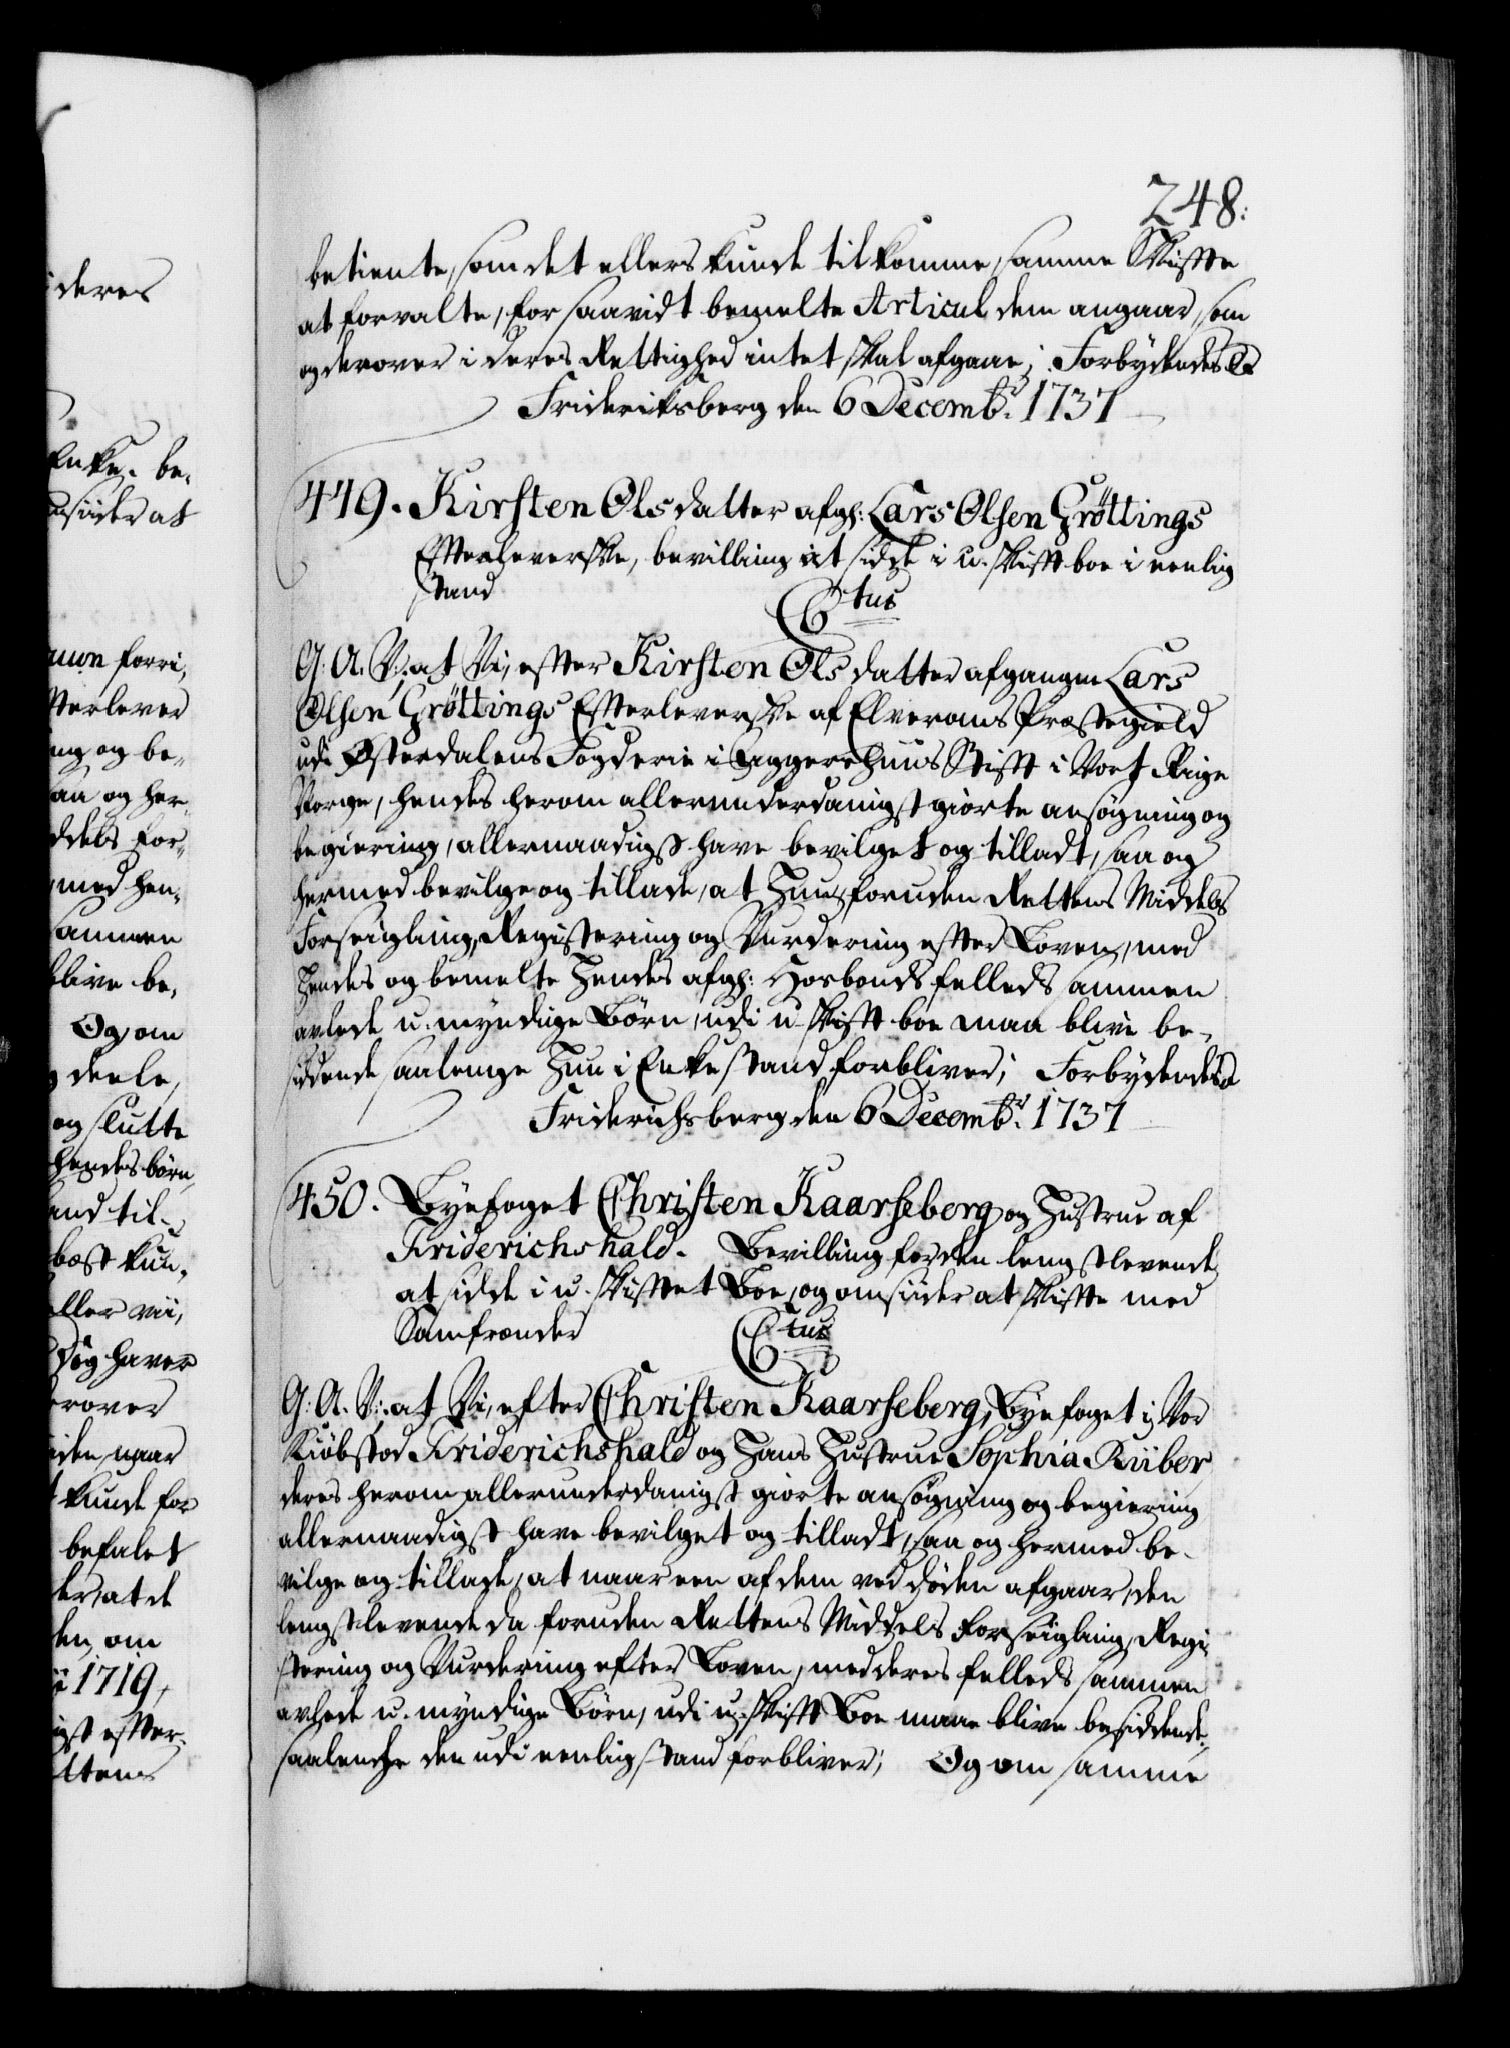 248:
betiente, som det ellers kunde tilkomme, samme Skifte
at forvalte, for saavidt bemelte Articul dem angaar, som
og derover i deres Rettighed intet skal afgaae; Forbydendes &
Friderichsberg den 6 Decembr. 1737
449. Kirsten Olsdatter afg: Lars Olsen Grøttings
Effterleverske, bevilling at sidde i u-skifft boe i eenlig
stand
C tus
G: A. V: at Vi, effter Kirsten Olsdatter afgangen Lars
Olsen Grøttings Effterleverske af Elverums Præstegield
udi Østerdalens Fogderie i Aggershuus Stifft i Vort Rige
Norge, hendes herom allerunderdanigst giorte ansøgning og
begiering, allernaadigst have bevilget og tilladt, saa og
hermed bevilge og tillade, at Hun, foruden Rettens Middels
Forseigling, Registering og Vurdering effter Loven, med
Hendes og bemelte Hendes afg: Hosbonds felleds sammen
avlede u-myndige Børn, udi u-skifft boe maa blive be-
siddende saalenge Hun i Enkestand forbliver; Forbydendes
Friderichsberg den 6 Decembr. 1737
450. Byefoget Christen Kaarseberg og Hustrue af
Friderichshald. Bevilling for den lengstlevende
at sidde i u-skiftet Boe, og omsiider at skiffte med
Samfrænder
C tus
G: A. V: at Vi, efter Christen Kaarseberg, Byefoget i Vor
Kiøbstad Friderichshald og Hans Hustrue Sophia Küber
deres herom allerunderdanigst giorte ansøgning og begiering
allernaadigst have bevilget og tilladt, saa og hermed be-
vilge og tillade, at naar een af dem ved døden afgaar, den
lengstlevende da foruden Rettens Middels Forseigling, Regi-
stering og Vurdering efter Loven, med deres felleds sammen
avlede u-myndige Børn, udi u-skifft Boe maae blive besiddende
saalenge den udi eenlig stand forbliver; Og om samme